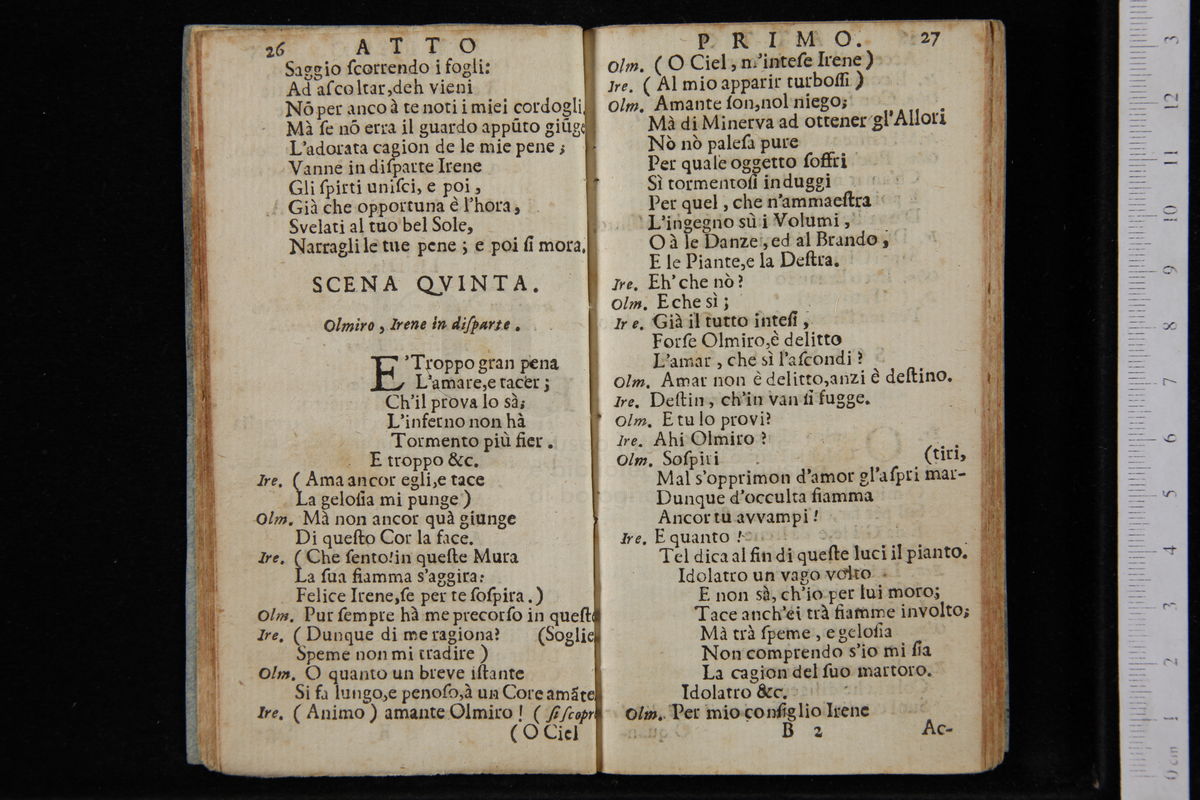 26 ATTO
Saggio ſcorrendo i fogli:
Ad aſcoltar,deh vieni
Nō per anco à te noti i miei cordogli.
Mà ſe nō erra il guardo appūto giūge
L'adorata cagion de le mie pene;
Vanne in diſparte Irene
Gli ſpirti uniſci, e poi,
Già che opportuna è l'hora,
Svelati al tuo bel Sole,
Narragli le tue pene; e poi ſi mora.
SCENA QVINTA.
Olmiro, Irene in diſparte.
E'Troppo gran pena
L'amare,e tacer;
Ch'il prova lo sà;
L'inferno non hà
Tormento più fier.
E troppo &c.
Ire. (Ama ancor egli,e tace
La geloſia mi punge)
Olm. Mà non ancor quà giunge
Di queſto Cor la face.
Ire. (Che ſento!in queſte Mura
La ſua fiamma s'aggira:
Felice Irene,ſe per te ſoſpira.)
Olm. Pur ſempre hà me precorſo in queſte
Ire. (Dunque di me ragiona? (Soglie
Speme non mi tradire)
Olm. O quanto un breve iſtante
Si fa lungo,e penoſo,à un Core amāte
Ire. (Animo) amante Olmiro! (ſi ſcopre
(O Ciel
PRIMO. 27
Olm. (O Ciel, m'inteſe Irene)
Ire. (Al mio apparir turboſſi)
Olm. Amante ſon,nol niego;
Mà di Minerva ad ottener gl'Allori
Nò nò paleſa pure
Per quale oggetto ſoffri
Sì tormentoſi induggi
Per quel, che n'ammaeſtra
L'ingegno sù i Volumi,
O à le Danze, ed al Brando,
E le Piante,e la Deſtra.
Ire. Eh' che nò?
Olm. E che sì;
Ire. Già il tutto inteſi,
Forſe Olmiro,è delitto
L'amar, che sì l'aſcondi?
Olm. Amar non è delitto,anzi è deſtino.
Ire. Deſtin, ch'in van ſi fugge.
Olm. E tu lo provi?
Ire. Ahi Olmiro?
Olm. Soſpiri (tiri,
Mal s'opprimon d'amor gl'aſpri mar-
Dunque d'occulta fiamma
Ancor tu avvampi!
Ire. E quanto!
Tel dica al fin di queſte luci il pianto.
Idolatro un vago volto
E non sà, ch'io per lui moro;
Tace anch'ei trà fiamme involto;
Mà trà ſpeme, e geloſia
Non comprendo s'io mi ſia
La cagion del ſuo martoro.
Idolatro &c.
Olm. Per mio conſiglio Irene
B 2 Ac-